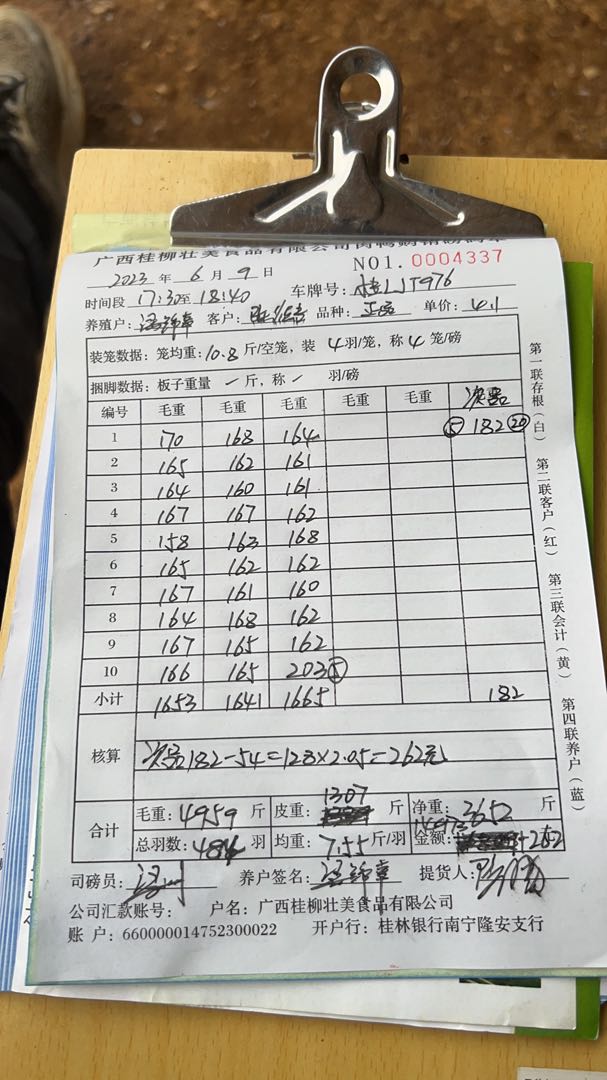 广西桂柳壮美食品有限公司肉鸭销售磅码单
NO1. 0004337
2023 年 6 月 9 日
时间段 17:30至18:40 车牌号:
养殖户: 客户: 品种: 正品 单价: 4.1
装笼数据: 笼均重: 10.8 斤/空笼, 装 4 羽/笼, 称 4 笼/磅
捆脚数据: 板子重量 — 斤, 称 — 羽/磅
编号 毛重 毛重 毛重 毛重 毛重 次品
1 170 168 164 ⑤ 182 ⑳
2 165 162 161
3 164 160 161
4 167 167 162
5 158 163 168
6 165 162 162
7 167 161 160
8 164 168 162
9 167 165 162
10 166 165 203 ⑤
小计 1653 1641 1665 182
核算 次品182-54=128×2.05=262元
合计 毛重: 4959 斤 皮重: 1307 斤 净重: 3652 斤
总羽数: 484 羽 均重: 7.55 斤/羽 金额: +262
司磅员: 养户签名: 提货人:
公司汇款账号: 户名: 广西桂柳壮美食品有限公司
账 户: 660000014752300022 开户行: 桂林银行南宁隆安支行
第一联存根(白) 第二联客户(红) 第三联会计(黄) 第四联养户(蓝)